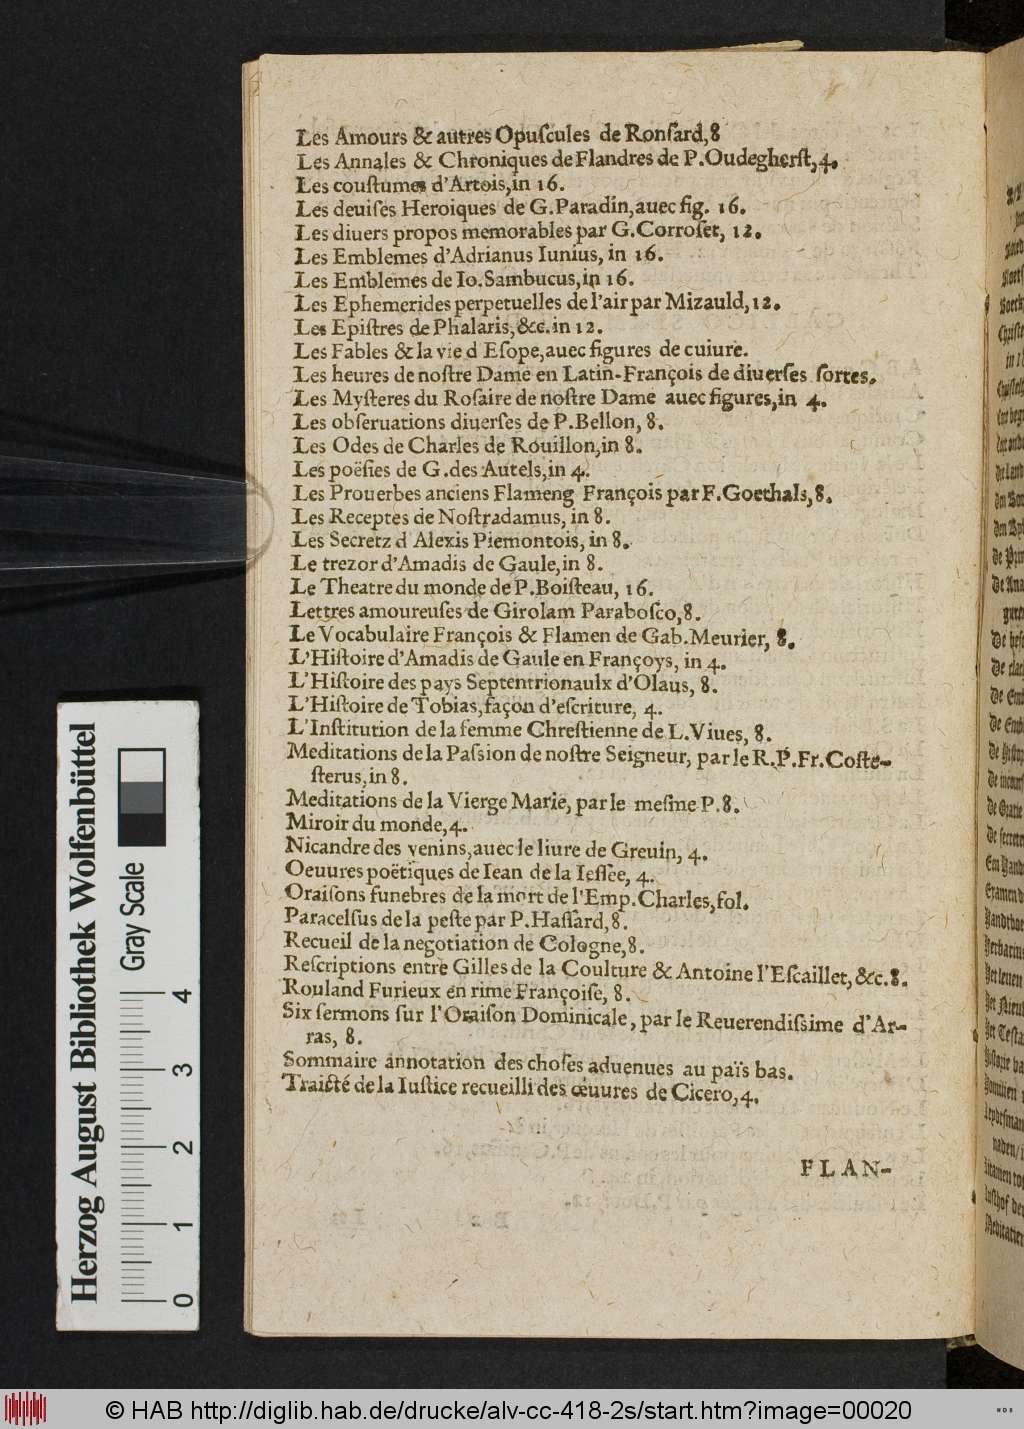 Les Amours & autres Opuſcules de Ronſard,8
Les Annales & Chroniques de Flandres de P.Oudegherſt,4.
Les couſtumes d'Artois,in 16.
Les deuiſes Heroiques de G.Paradin,auec fig. 16.
Les diuers propos memorables par G.Corroſet, 12.
Les Emblemes d'Adrianus Iunius, in 16.
Les Emblemes de Io.Sambucus,in 16.
Les Ephemerides perpetuelles de l'air par Mizauld,12.
Les Epiſtres de Phalaris,&c.in 12.
Les Fables & la vie d Eſope,auec figures de cuiure.
Les heures de noſtre Dame en Latin-François de diuerſes ſortes.
Les Myſteres du Roſaire de noſtre Dame auec figures,in 4.
Les obſeruations diuerſes de P.Bellon, 8.
Les Odes de Charles de Rouillon,in 8.
Les poëſies de G.des Autels,in 4.
Les Prouerbes anciens Flameng François par F.Goethals,8.
Les Receptes de Noſtradamus, in 8.
Les Secretz d'Alexis Piemontois, in 8.
Le trezor d'Amadis de Gaule,in 8.
Le Theatre du monde de P.Boiſteau, 16.
Lettres amoureuſes de Girolam Paraboſco,8.
Le Vocabulaire François & Flamen de Gab.Meurier, 8.
L'Hiſtoire d'Amadis de Gaule en Françoys, in 4.
L'Hiſtoire des pays Septentrionaulx d'Olaus, 8.
L'Hiſtoire de Tobias,façon d'eſcriture, 4.
L'Inſtitution de la femme Chreſtienne de L.Viues, 8.
Meditations de la Paſsion de noſtre Seigneur, par le R.P.Fr.Coſte-
ſterus,in 8.
Meditations de la Vierge Marie, par le meſme P.8.
Miroir du monde,4.
Nicandre des venins,auec le liure de Greuin, 4.
Oeuures poëtiques de Iean de la Ieſſée, 4.
Oraiſons funebres de la mort de l'Emp.Charles,fol.
Paracelſus de la peſte par P.Haſſard,8.
Recueil de la negotiation de Cologne,8.
Reſcriptions entre Gilles de la Coulture & Antoine l'Eſcaillet,&c.8.
Rouland Furieux en rime Françoiſe, 8.
Six ſermons ſur l'Oraiſon Dominicale, par le Reuerendiſsime d'Ar-
ras, 8.
Sommaire annotation des choſes aduenues au païs bas.
Traicté de la Iuſtice recueilli des œuures de Cicero,4.
FLAN-
Herzog August Bibliothek Wolfenbüttel
Gray Scale
0 1 2 3 4
© HAB http://diglib.hab.de/drucke/alv-cc-418-2s/start.htm?image=00020